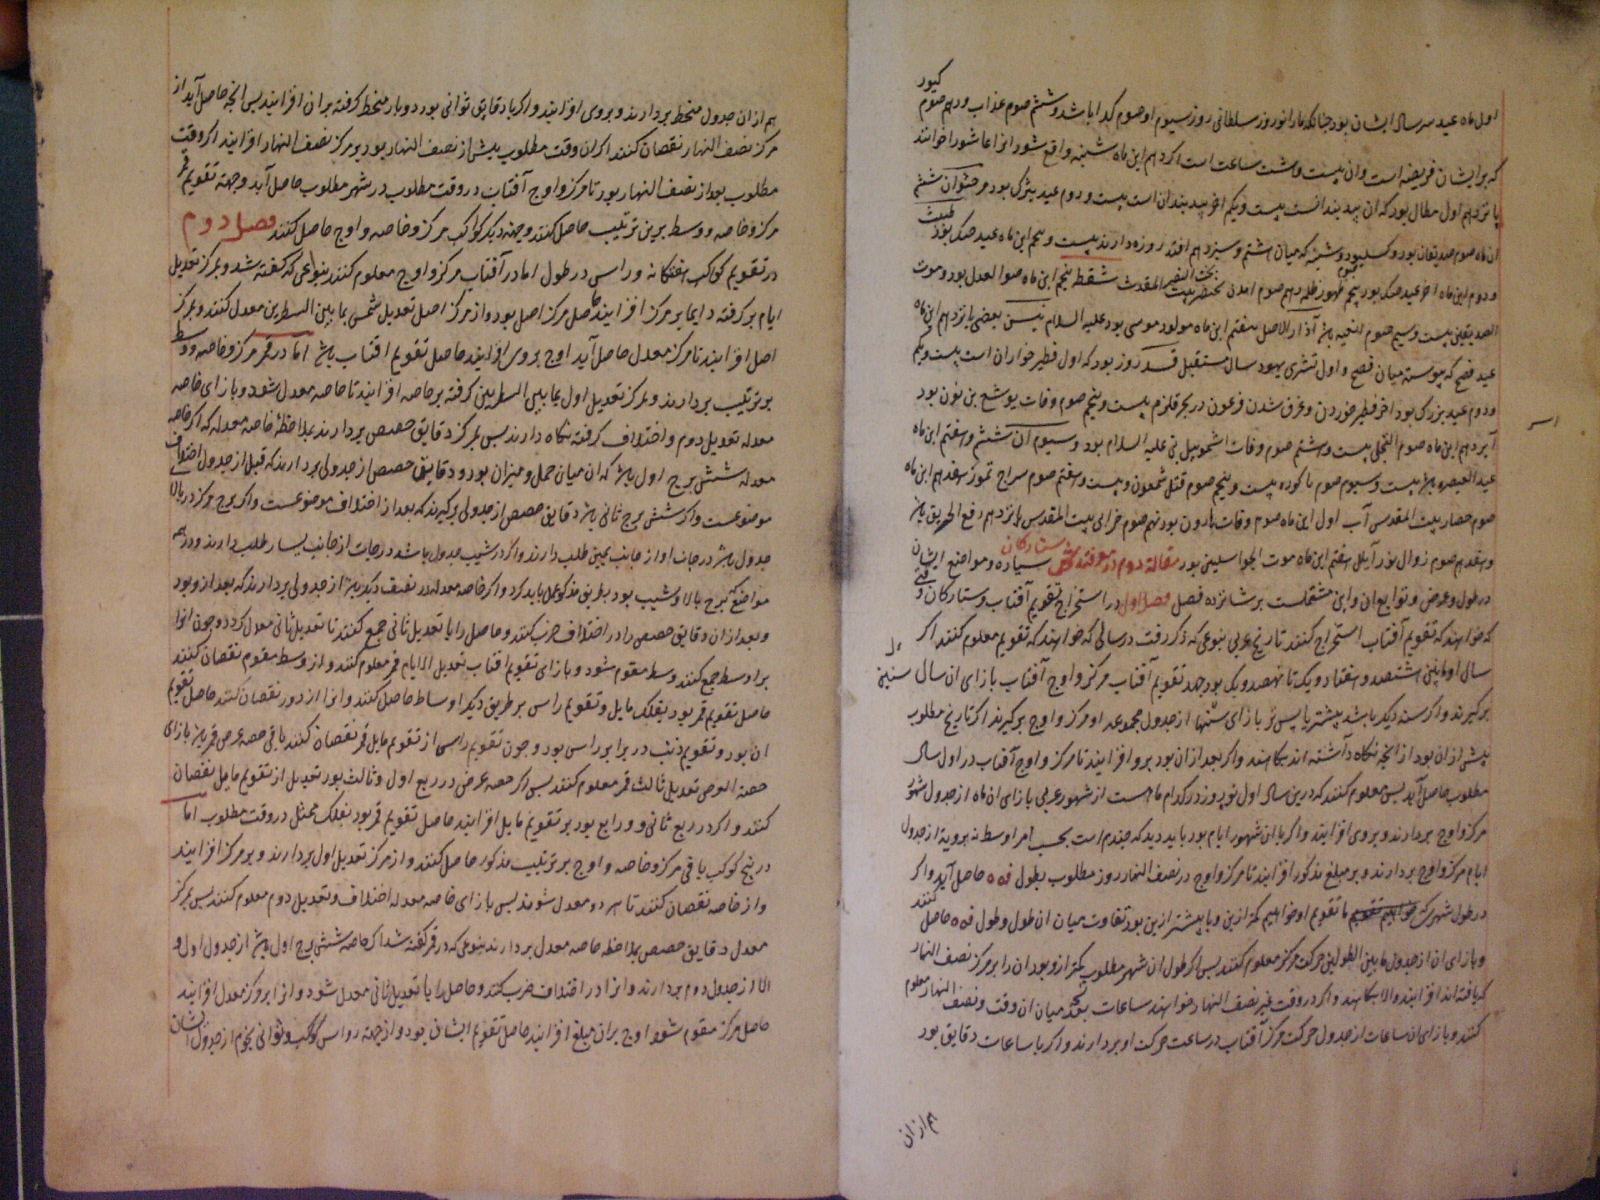 کیور
اول ماه عید سر سال ایشان بود چنانکه ما را نوروز سلطانی روز سیوم او صوم کدلیا باشد و ششم صوم عذاب و دهم صوم
که بر ایشان فریضه است و آن بیست و شت ساعت است اکر دهم این ماه شنبه واقع شود انرا عاشورا خوانند
پانزدهم اول مطال بود که ان بیست و یکم اخر ان است بیست و دوم عید بزرک بود مرحشوان ششم
ان ماه صوم صدیقان بود و شنبه که میان هشتم و سیزدهم افتد روزه دارند بیست و پنجم این ماه عید حنکه بود
و دوم این ماه اخر عید حنکه بود پنجم ظهور ظلمه دهم صوم المقدس شفط پنجم این ماه صوم العدل بود و موت
الصدیقین بیست و سیم صوم باشد آذار الاصل هفتم این ماه مولود موسی بود علیه السلام نیسن بعضی پانزدهم این ماه
عید فصح که پیوسته میان فصح و اول تشری یهود سال مستقبل قسد روز بود که اول فطیر خواران است بیست و یکم
و دوم عید بزرک بود اخر فطیر خوردن و غرق شدن فرعون در بحر قلزم بیست و پنجم صوم وفات یوشع بن نون بود
آیر دهم این ماه صوم بیست و هشتم صوم وفات اشموییل نبی علیه السلام بود و سیوم ان ششم و هفتم این ماه
عید العنصره باشد بیست و سیوم صوم باکوره بیست و پنجم صوم قتل شمعون و بیست و هفتم صوم سراج تموز هفدهم این ماه
صوم حصار بیت المقدس آب اول این ماه صوم وفات هارون بود نهم صوم خرابی بیت المقدس پانزدهم رفع الحریق باشد
و هفدهم صوم زوال نور آیلل هفتم این ماه موت بود مقاله دوم در معرفت روش ستارکان سیاره و مواضع ایشان
در طول و عرض و توابع ان و این مشتملست بر شانزده فصل فصل اول در استخراج تقویم آفتاب و ستارکان وقتی
که خواهند که تقویم آفتاب استخراج کنند تاریخ عربی بنوعی که ذکر رفت در سالی که خواهند که تقویم معلوم کنند اکر
سال او مابین هشتصد و هفتاد و یک تا نهصد و یک بود جهد تقویم آفتاب مرکز و اوج آفتاب بازای ان سال سنین
برکیرند و اکر سند دیکر باشد پیشتر یا پس تر بازای سنتها از جدول مجموعه او مرکز و اوج برکیرند اکر تاریخ مطلوب
پیش ازان بود از انچه نکاه داشته اند بکاهند و اکر بعد ازان بود برو افزایند تا مرکز و اوج آفتاب در اول سال
مطلوب حاصل آید پس معلوم کنند که درین سال اول نوروز در کدام ماهست از شهور عربی بازای ان ماه از جدول شهور
مرکز و اوج بردارند و بروی افزایند و اکر با ان شهور ایام بود باید دید که چندم است بحسب امر اوسط نه برویة از جدول
ایام مرکز و اوج بردارند و بر مبلغ مذکور افزایند تا مرکز و اوج در نصف النهار روز مطلوب بطول حاصل آید و اکر
کنند
در طول شهری که ما تقویم او خواهیم کمتر ازین و یا بیشتر ازین بود تفاوت میان ان طول و طول حاصل
و بازای ان از جدول ما بین الطولین حرکت مرکز معلوم کنند پس اکر طول ان شهر مطلوب کمتر ازو بود ان را بر مرکز نصف النهار
که یافته اند افزایند والا بکاهند و اکر در وقت غیر نصف النهار خواهند ساعات بعد میان ان وقت و نصف النهار معلوم
کنند و بازای ان ساعات از جدول حرکت مرکز آفتاب در ساعت حرکت او بردارند و اکر با ساعات دقایق بود
هم از ان
هم از ان جدول منحط بردارند و بروی افزایند و اکر با دقایق ثوانی بود دوبار منحط کرفته بران افزایند پس انچه حاصل آید از
مرکز نصف النهار نقصان کنند اکر ان وقت مطلوب پیش از نصف النهار بود و بر مرکز نصف النهار افزایند اکر وقت
مطلوب بعد از نصف النهار بود تا مرکز و اوج آفتاب در وقت مطلوب در شهر مطلوب حاصل آید و جهة تقویم قمر
مرکز و خاصه و وسط برین ترتیب حاصل کنند و جهة دیکر کواکب مرکز و خاصه و اوج حاصل کنند فصل دوم
در تقویم کواکب هفتکانه و راس در طول اما در آفتاب مرکز و اوج معلوم کنند بنوعی که کفته شد و بمرکز تعدیل
ایام برکرفته دایما بر مرکز افزایند حاصل مرکز اصل بود و از مرکز اصل تعدیل شمس بما بین السطرین معدل کنند و بمرکز
اصل افزایند تا مرکز معدل حاصل آید اوج بروی افزایند حاصل تقویم افتاب باشد اما در قمر مرکز و خاصه و وسط
بر ترتیب بردارند و بمرکز تعدیل اول بما بین السطرین کرفته بر خاصه افزایند تا خاصه معدل شود و بازای خاصه
معدله تعدیل دوم و اختلاف کرفته نکاه دارند پس بمرکز دقایق حصص بردارند بملاحظهٔ خاصه معدله که اکر خاصه
معدله شش برج اول باشد که ان میان حمل و میزان بود و دقایق حصص از جدولی بردارند که قبل از جدول اختلاف
موضوعست و اکر شش برج ثانی باشد دقایق حصص از جدولی برکیرند که بعد از اختلاف موضوعست و اکر برج مرکز در بالا
جدول باشد درجات او از جانب یمین طلب دارند و اکر در شیب جدول باشد درجات از جانب یسار طلب دارند و در همه
مواضع که برج بالا و شیب بود بطریق مذکور عمل باید کرد و اکر خاصه معدله در نصف دیکر باشد از جدولی بردارند که بعد ازو بود
و بعد ازان دقایق حصص را در اختلاف ضرب کنند و حاصل را با تعدیل ثانی جمع کنند تا تعدیل ثانی معدل کردد و چون انرا
بر اوسط جمع کنند وسط مقوم شود و بازای تقویم افتاب تعدیل الایام قمر معلوم کنند و از وسط مقوم نقصان کنند
حاصل تقویم قمر بود بفلک مایل و تقویم راس بر طریق دیکر اوساط حاصل کنند و انرا از دور نقصان کنند حاصل تقویم
ان بود و تقویم ذنب در برابر راس بود و چون تقویم راس از تقویم مایل قمر نقصان کنند باقی حصه عرض قمر باشد بازای
حصة العرض تعدیل ثالث قمر معلوم کنند پس اکر حصه عرض در ربع اول و ثالث بود تعدیل از تقویم مایل نقصان
کنند و اکر در ربع ثانی و رابع بود بر تقویم مایل افزایند حاصل تقویم قمر بود بفلک ممثل در وقت مطلوب اما
در پنج کوکب باقی مرکز و خاصه و اوج بر ترتیب مذکور حاصل کنند و از مرکز تعدیل اول بردارند و بر مرکز افزایند
و از خاصه نقصان کنند تا هر دو معدل شوند پس بازای خاصه معدله اختلاف و تعدیل دوم معلوم کنند پس بمرکز
معدل دقایق حصص بملاحظه خاصه معدل بردارند بنوعی که در قمر کفته شد اکر خاصه شش برج اول باشد از جدول اول و
الا از جدول دوم بردارند و انرا در اختلاف ضرب کنند و حاصل را با تعدیل ثانی معدل شود و انرا بر مرکز معدل افزایند
حاصل مرکز مقوم شود اوج بران مبلغ افزایند حاصل تقویم ایشان بود و از جهة رواس کواکب و ثوانی نجوم از جدول ایشان